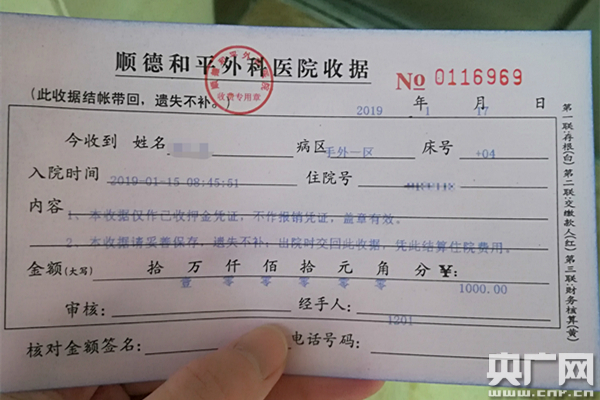 顺德和平外科医院收据
No 0116969
(此收据结帐带回，遗失不补。)
收费专用章
2019 年 1 月 17 日
今收到 姓名 病区 手外一区 床号 +04
入院时间 2019-01-15 08:45:51 住院号
内容
1、本收据仅作已收押金凭证，不作报销凭证，盖章有效。
2、本收据请妥善保存，遗失不补，出院时交回此收据，凭此结算住院费用。
金额(大写) 拾 万 仟 佰 拾 元 角 分 ¥:
壹 零 零 零 零 零 1000.00
审核: 经手人: 1201
核对金额签名: 电话号码:
第一联:存根(白) 第二联:交缴款人(红) 第三联:财务核算(黄)
央广网
www.cnr.cn